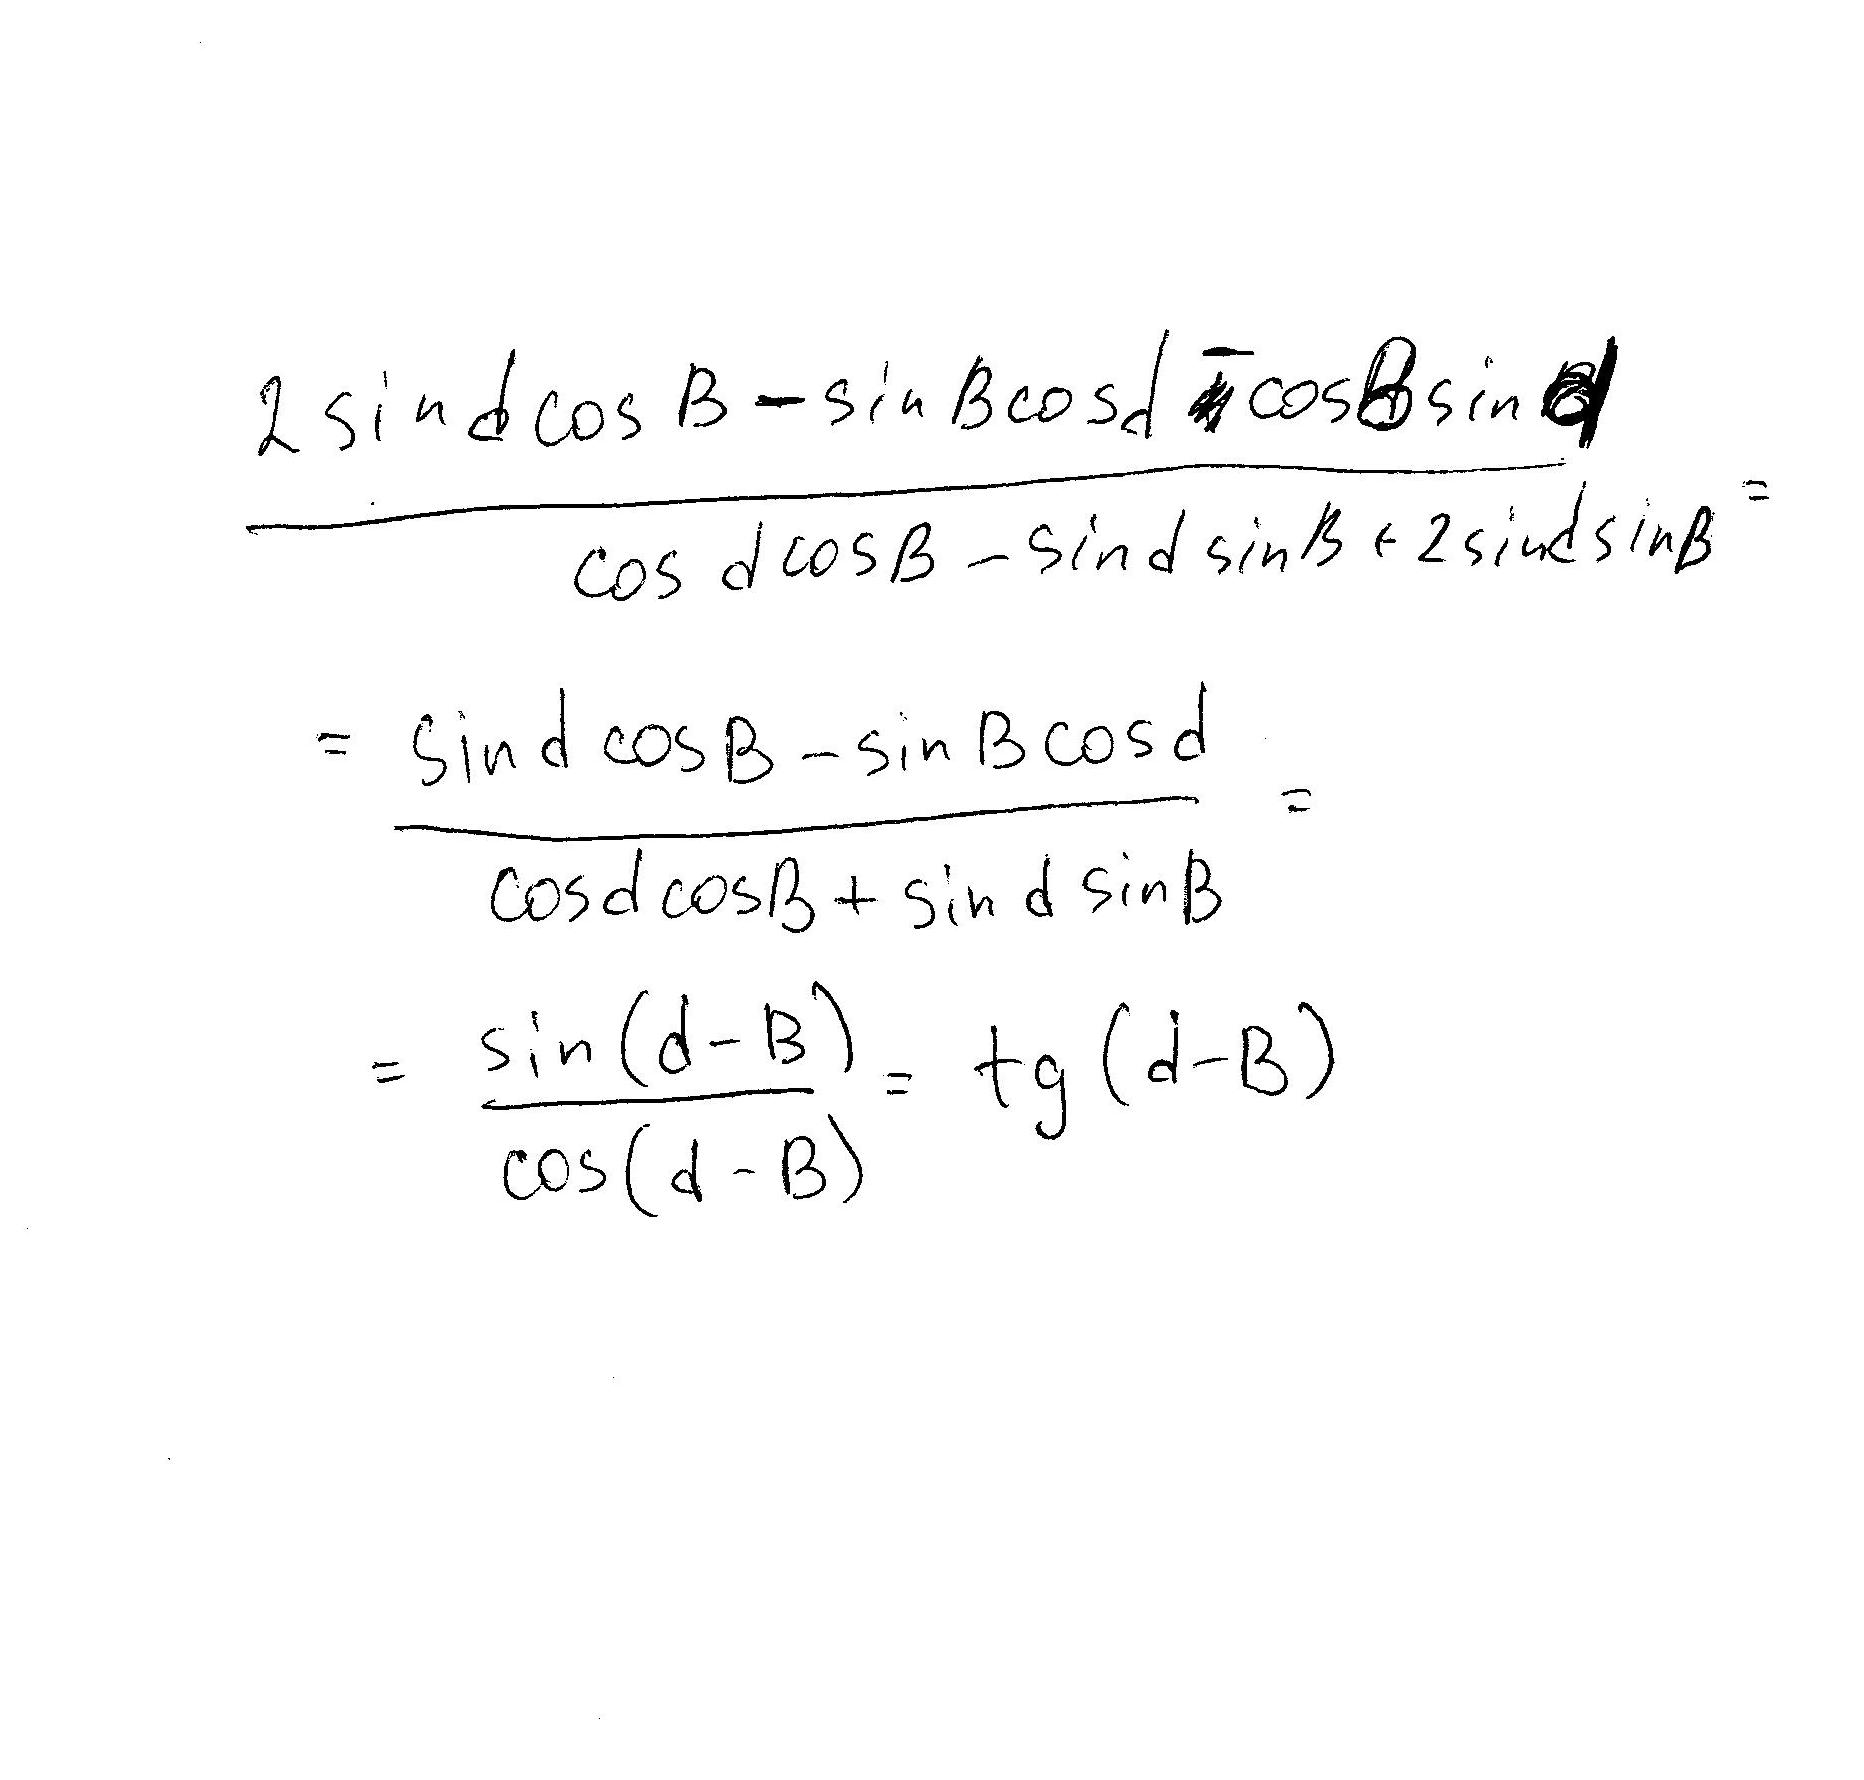 2 sin α cos β - sin β cos α - cos β sin α
cos α cos β - sin α sin β + 2 sin α sin β =
= sin α cos β - sin β cos α =
cos α cos β + sin α sin β
= sin (α - β) = tg (α - β)
cos (α - β)